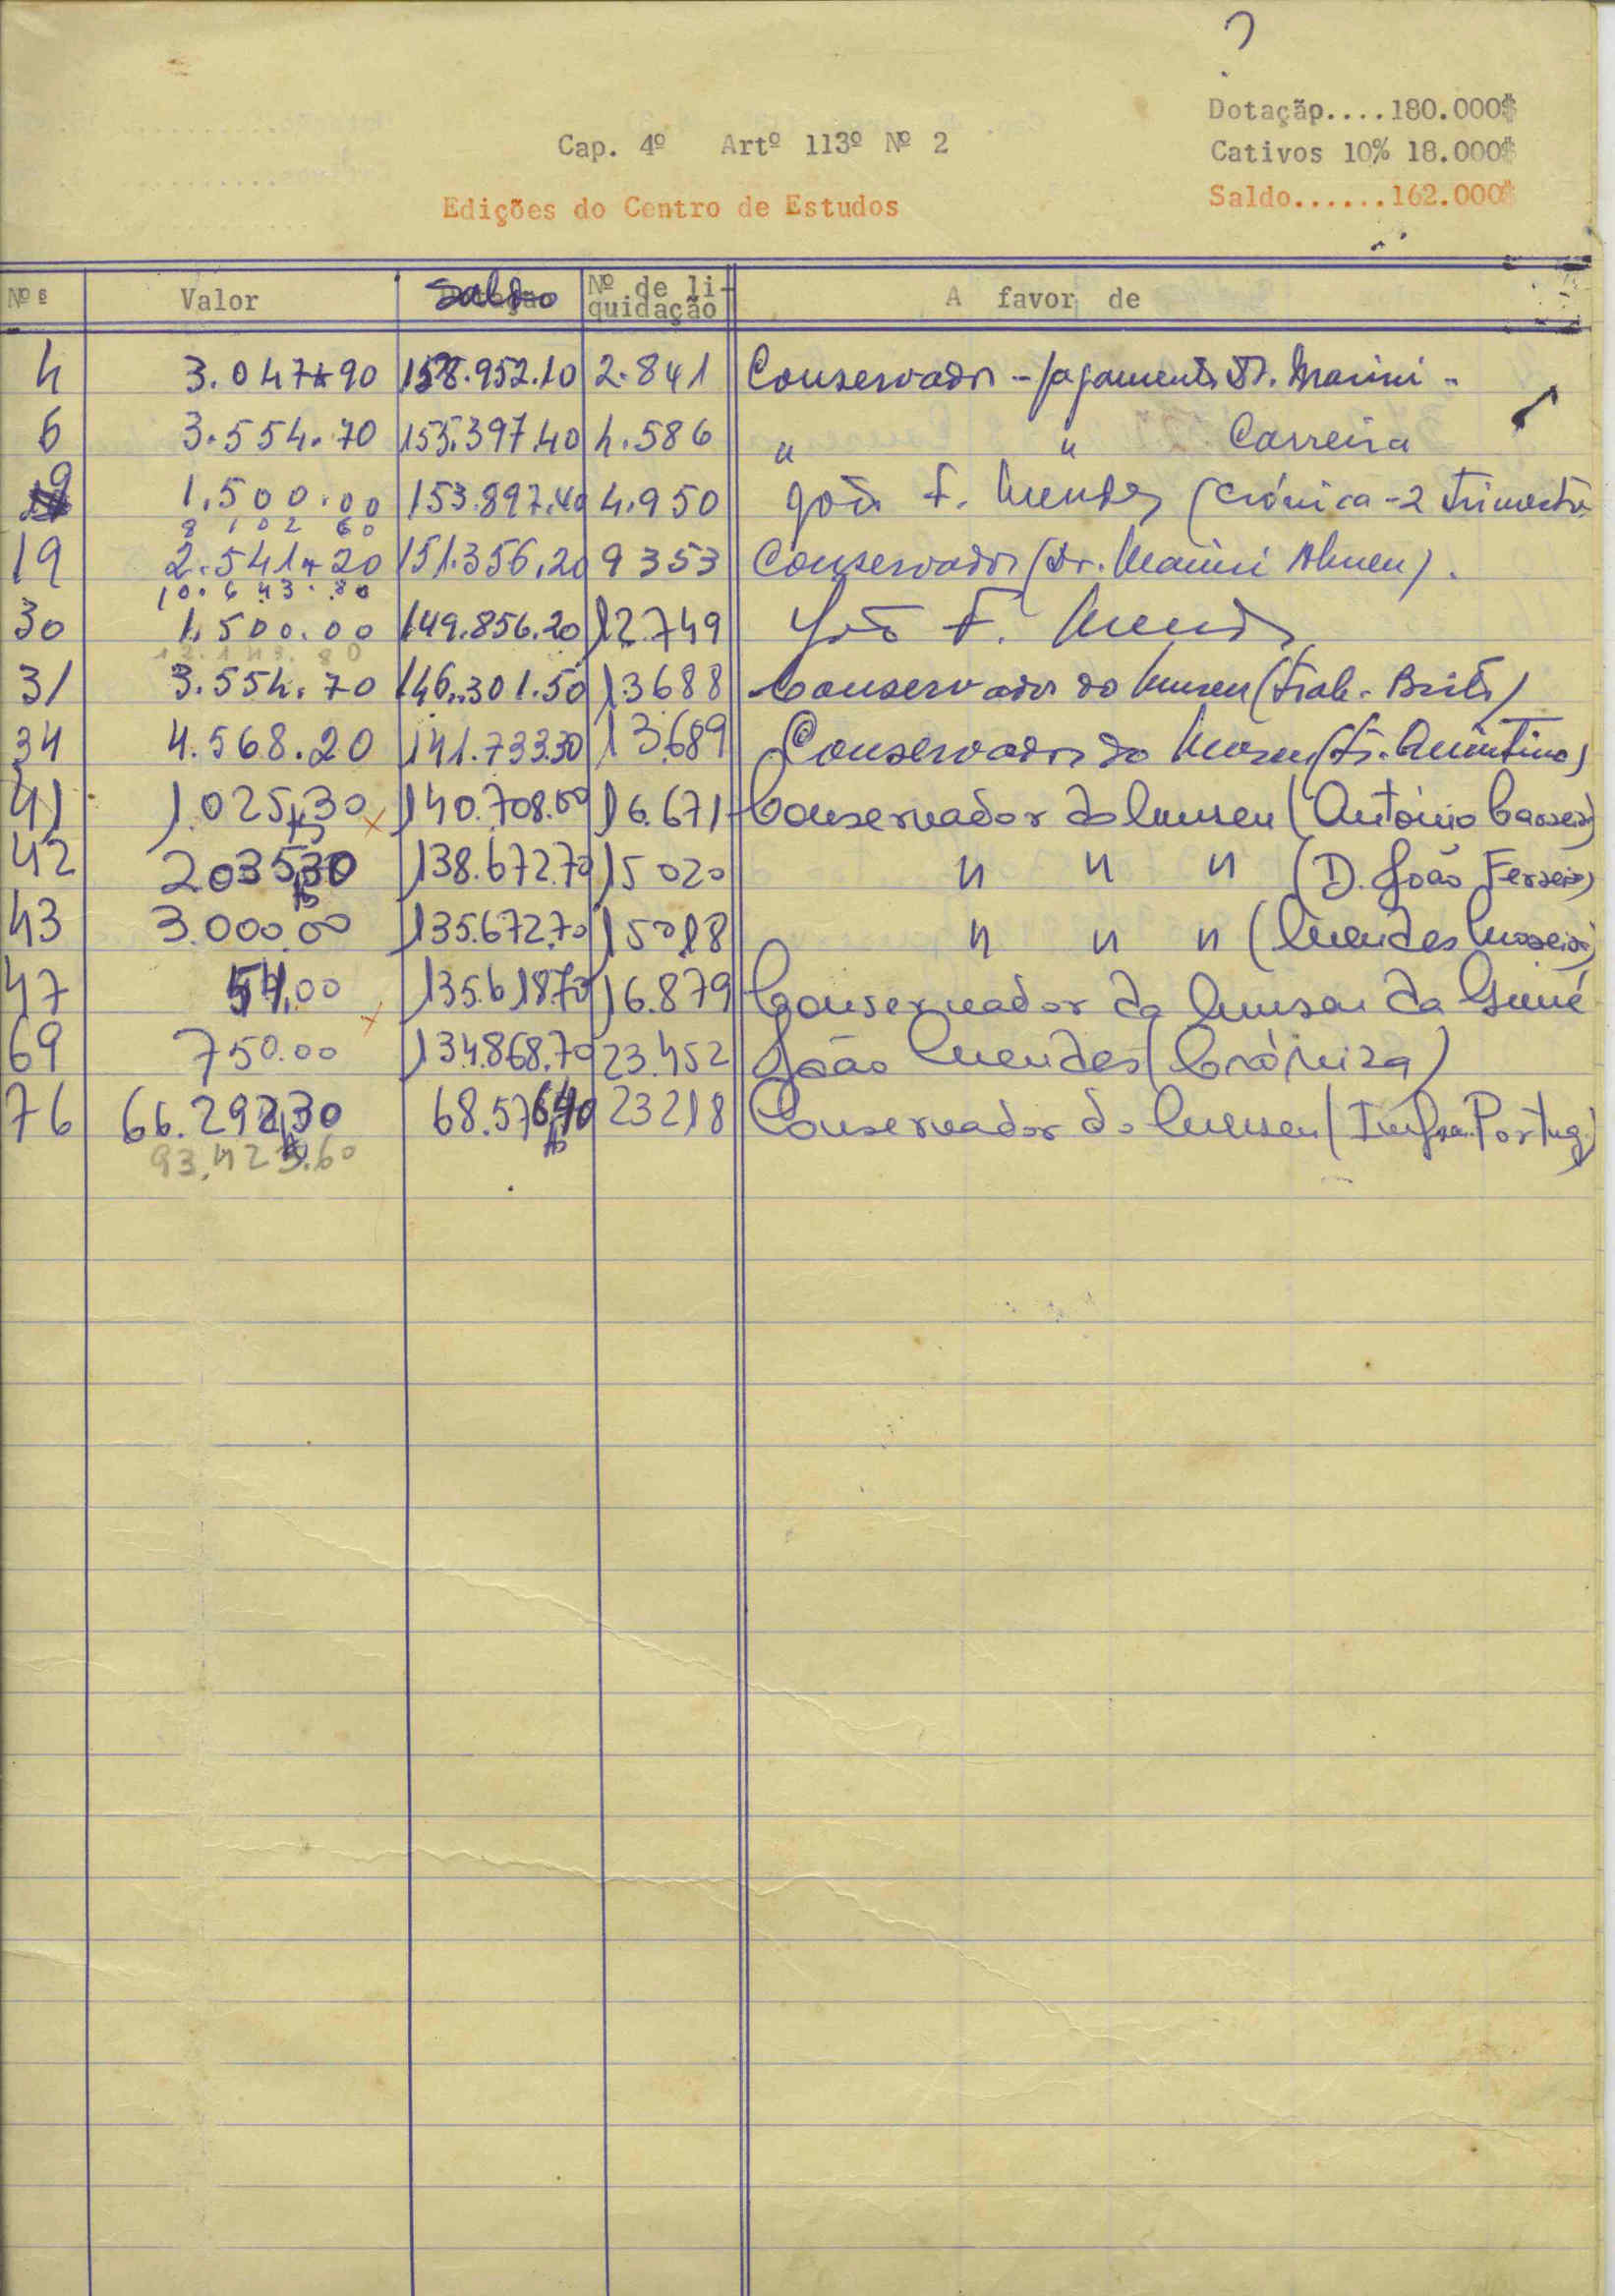 ?
Dotação....180.000$
Cap. 4º Artº 113º Nº 2
Cativos 10% 18.000$
Edições do Centro de Estudos
Saldo......162.000$
Nºs Valor Saldo Nº de li-quidação A favor de
4 3.047$90 158.952.10 2.841 Conservador - pagamento Dr. Marini -
6 3.554.70 155.397.40 4.586 " " Carreira
9 1.500.00 153.897.40 4.950 João F. Mendes (Crónica - 2 Trimestre
8 102 60
19 2.541$20 151.356.20 9353 Conservador (Dr. Marini Abreu).
10.643.80
30 1.500.00 149.856.20 12.749 João F. Mendes
12.143.80
31 3.554.70 146.301.50 13688 Conservador do Museu (Trab. Brito)
34 4.568.20 141.733.30 13.689 Conservador do Museu (Dr. Quintino)
41 1.025,30 140.708.00 16.671 Conservador do Museu (António Carreira)
42 2035,30 138.672.70 15020 " " " (D. João Ferreira)
43 3.000.00 135.672.70 15018 " " " (Mendes Moreira)
47 54.00 135.618.70 16.879 Conservador do Museu da Guiné
69 750.00 134.868.70 23.452 João Mendes (Crónica)
76 66.292,30 68.576,40 23218 Conservador do Museu (Portug.)
93.423.60